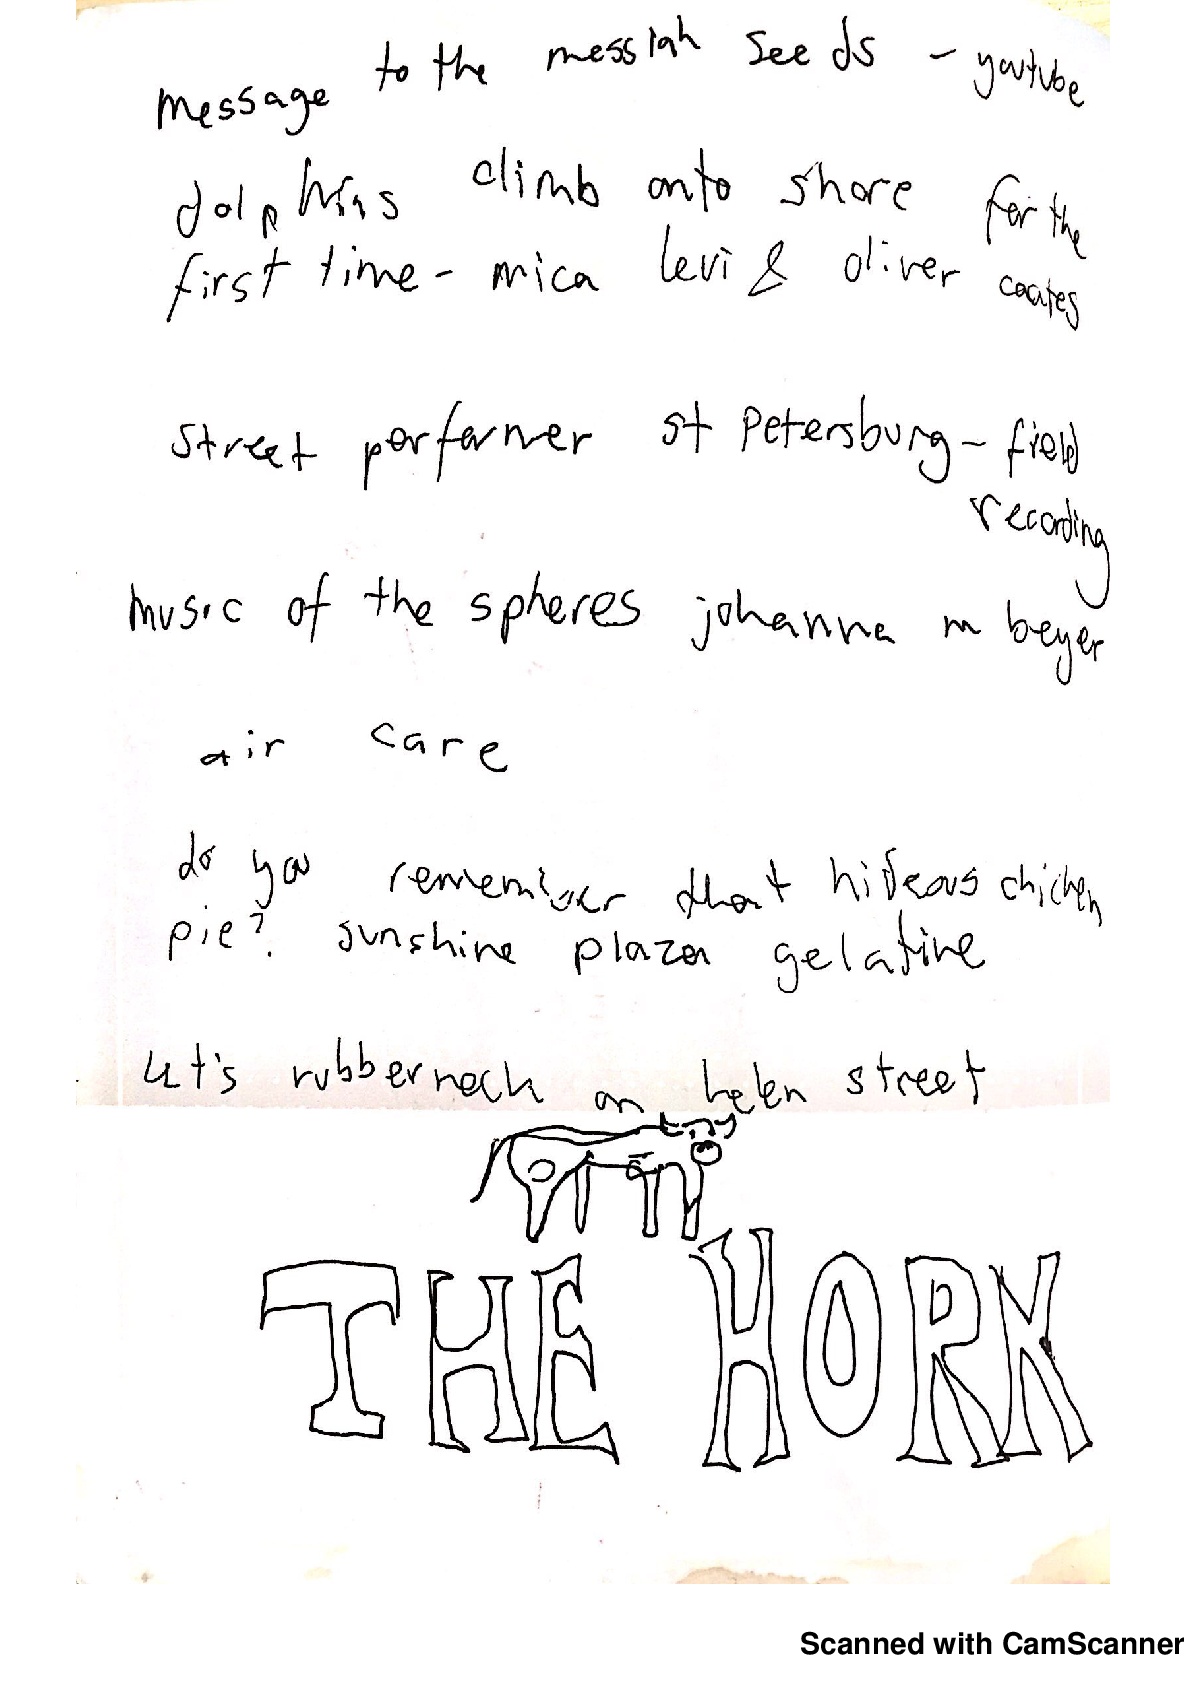 message to the messiah seeds - youtube
dolphins climb onto shore for the
first time - mica levi & oliver coates
street performer st petersburg - field
recording
music of the spheres johanna m beyer
air care
do you remember that hideous chicken
pie? sunshine plaza gelatine
let's rubberneck on helen street
THE HORN
Scanned with CamScanner